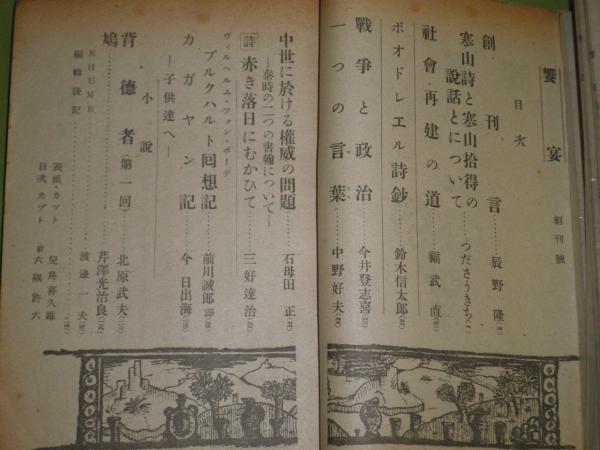 饗宴
創刊號
目次
創刊言……辰野隆
寒山詩と寒山拾得の
說話とについて……つださうきち
社會再建の道……福武直
ボオドレエル詩鈔……鈴木信太郎
戰爭と政治……今井登志喜
一つの言葉……中野好夫
中世に於ける權威の問題……石母田正
—泰時の二つの書翰について—
詩 赤き落日にむかひて……三好達治
ヴィルヘルム・フォン・ボーデ
ブルクハルト回想記……前川誠郎譯
カガヤン記……今日出海
—子供達へ—
・小說
背德者(第一回)……北原武夫
鳩……芹澤光治良
RHUMB……渡邊一夫
編輯後記
表紙・カット 兒島喜久雄
目次カット 故 六隅許六